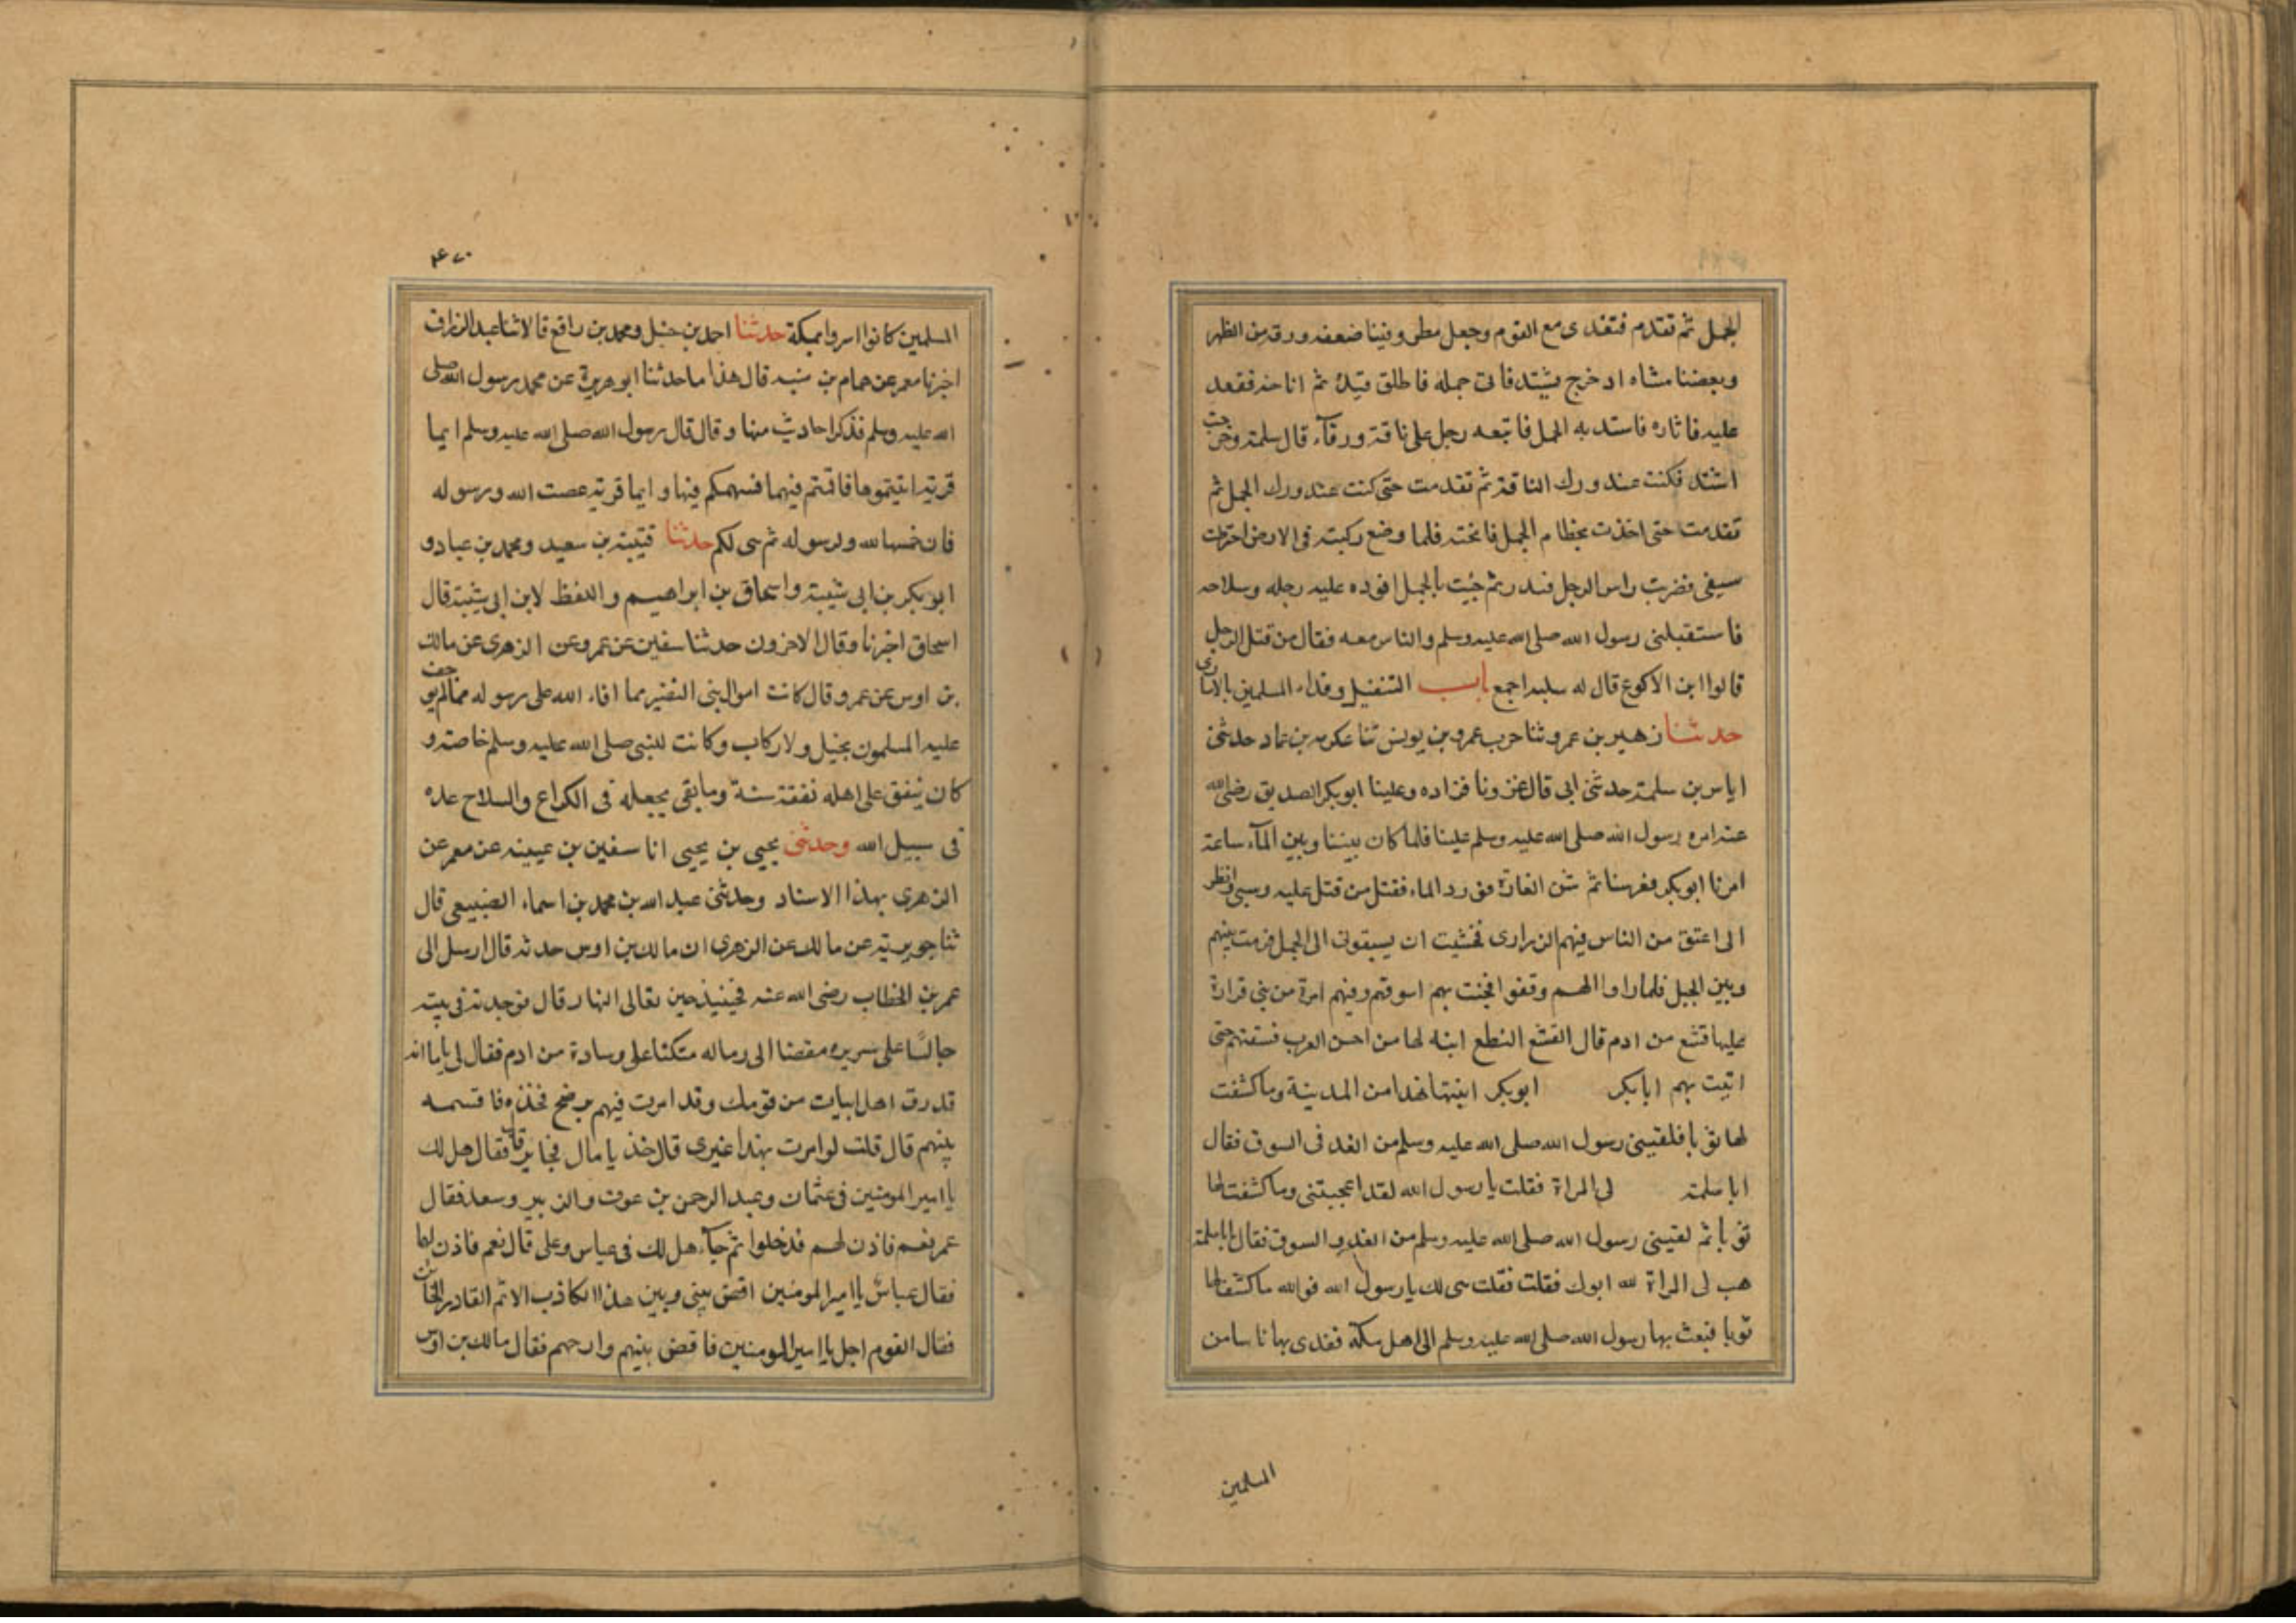 الجمل ثم تقدم فتغدى مع القوم وجعل ينظر وفينا ضعفه ورقه من الظهر
وبعضنا مشاه اد خرج يشتد فاتى جمله فاطلق قيده ثم اناخه فقعد
عليه فاثاره فاستد به الجمل فاتبعه رجل على ناقة ورقآء قال سلمة وخرجت
اشتد فكنت عند ورك الناقة ثم تقدمت حتى كنت عند ورك الجمل ثم
تقدمت حتى اخذت بخطام الجمل فانخته فلما وضع ركبته فى الارض اخترطت
سيفى فضربت راس الرجل فندر ثم جئت بالجمل اقوده عليه رحله وسلاحه
فاستقبلنى رسول الله صلى الله عليه وسلم والناس معه فقال من قتل الرجل
قالوا ابن الاكوع قال له سلبه اجمع باب التنفيل وفداء المسلمين بالاسارى
حدثنا زهير بن عمرو ثنا حرب عمرو بن يونس ثنا عكرمه بن عمار حدثنى
اياس بن سلمة حدثنى ابى قال غزونا فزاده وعلينا ابوبكر الصديق رضى الله
عنه امره رسول الله صلى الله عليه وسلم علينا فلما كان بيننا وبين المآء ساعة
امرنا ابوبكر فعرسنا ثم شن الغارة فورد الماء فقتل من قتل عليه وسبى وانظر
الى اعتق من الناس فيهم الذرارى فخشيت ان يسبقونى الى الجبل فرمت بينهم
وبين الجبل فلما راوا الهسم وقفوا فجئت بهم اسوقهم وفيهم امرة من بنى فزارة
عليها قشع من ادم قال القشع النطع ابنه لها من احسن العرب فسقتهم حتى
اتيت بهم ابابكر ابوبكر ابنتها فقدمنا المدينة وما كشفت
لها ثوبا فلقينى رسول الله صلى الله عليه وسلم من الغد فى السوق فقال
ابا سلمة لى المراة فقلت يا رسول الله لقد اعجبتنى وما كشفت لها
ثوبا ثم لقينى رسول الله صلى الله عليه وسلم من الغد و السوق فقال يا با سلمة
هب لى المراة لله ابوك فقلت فقلت هى لك يا رسول الله فو الله ما كشفت لها
ثوبا فبعث بها رسول الله صلى الله عليه وسلم الى اهل مكة ففدى بها ناسا من
المسلمين
٤٧٠
المسلمين كانوا اسروا بمكة حدثنا احمد بن حنبل ومحمد بن رافع قالا ثنا عبد الرزاق
اخبرنا معمر عن همام بن منبه قال هذا ما حدثنا ابو هريرة عن محمد رسول الله صلى
الله عليه وسلم فذكر احاديث منها وقال قال رسول الله صلى الله عليه وسلم ايما
قرية اتيتموها فاقمتم فيهما فسهمكم فيها وايما قرية عصت الله ورسوله
فان خمسها لله ولرسوله ثم هى لكم حدثنا قتيبة بن سعيد ومحمد بن عباد و
ابو بكر بن ابى شيبة واسحاق بن ابراهيم واللفظ لابن ابى شيبة قال
اسحاق اخبرنا وقال الاخرون حدثنا سفين عن عمرو عن الزهرى عن مالك
بن اوس عن عمر وقال كانت اموال بنى النضير مما افاء الله على رسوله مما لم يوجف
عليه المسلمون بخيل ولا ركاب وكانت للنبى صلى الله عليه وسلم خاصة و
كان ينفق على اهله نفقة سنة وما بقى يجعله فى الكراع والسلاح عده
فى سبيل الله وحدثنى يحيى بن يحيى انا سفين بن عيينه عن معمر عن
الزهرى بهذا الاسناد وحدثنى عبد الله بن محمد بن اسماء الضبيعى قال
ثنا جويرية عن مالك عن الزهرى ان مالك بن اوس حدثه قال ارسل الى
عمر بن الخطاب رضى الله عنه فجئته حين تعالى النهار قال فوجدته فى بيته
جالسًا على سريره مفضيا الى رماله متكئا على وسادة من ادم فقال لى يا ما انه
قد دق اهل ابيات من قومك وقد امرت فيهم برضخ فخذه فاقسمه
بينهم قال قلت لو امرت بهذا غيرى قال خذ يا مال فجا يرفا فقال هل لك
يا امير المومنين فى عثمان وعبد الرحمن بن عوف والزبير وسعد فقال
عمر نعم فاذن لهم فدخلوا ثم جآء هل لك فى عباس وعلى قال نعم فاذن لهما
فقال عباس يا امير المومنين اقض بينى وبين هذا الكاذب الاثم الغادر الخائن
فقال القوم اجل يا امير المومنين فاقض بينهم وارحهم فقال مالك بن اوس